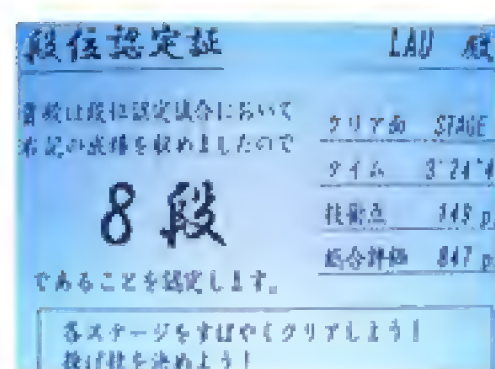 段位認定証
LAU 殿
貴殿は段位認定試合において
右記の成績を収めましたので
8段
であることを認定します。
クリア面 STAGE
タイム 3'24"4
技術点 148 p
総合評価 847 p
各ステージをすばやくクリアしよう！
投げ技を決めよう！